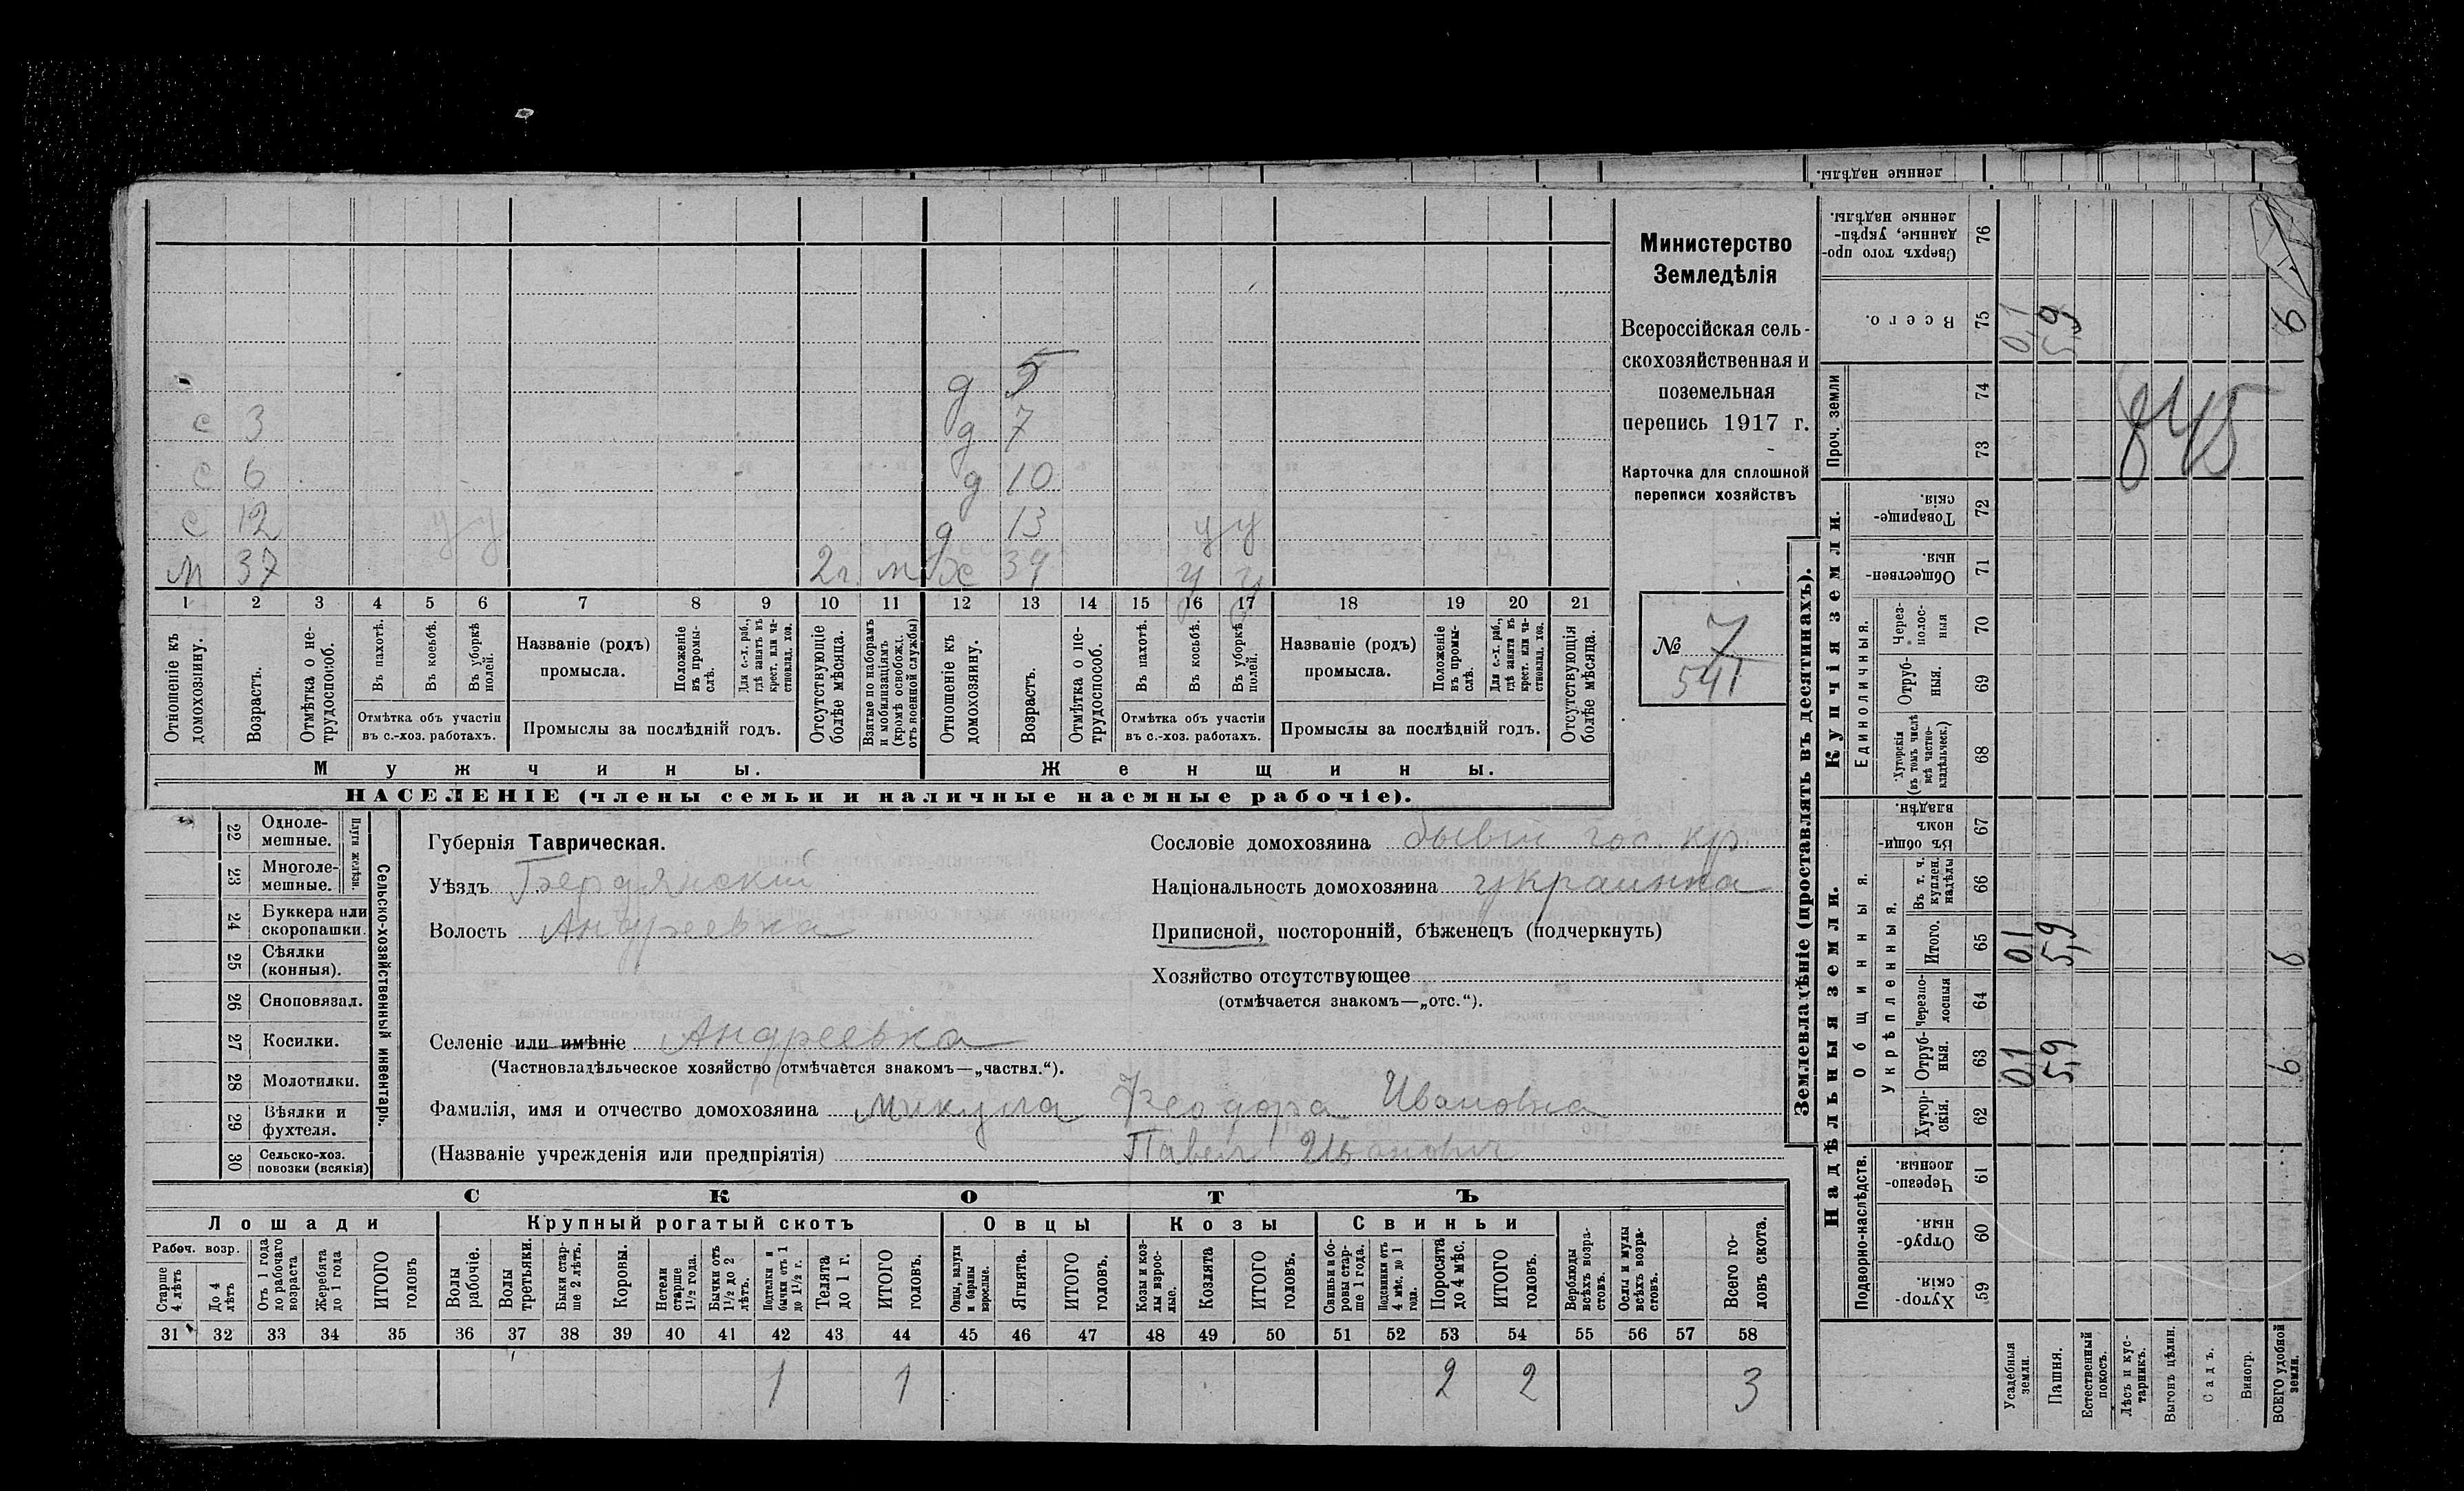 денные надѣлы.
д 5
с 3 д 7
с 6 д 10
с 12 у у д 13 у у
м 37 2 г. м ж 39 у у
1 2 3 4 5 6 7 8 9 10 11 12 13 14 15 16 17 18 19 20 21
Отношеніе къ домохозяину.
Возрастъ.
Отмѣтка о не-трудоспособ.
Въ пахотѣ.
Въ косьбѣ.
Въ уборкѣ полей.
Отмѣтка объ участіи
въ с.-хоз. работахъ.
Названіе (родъ)
промысла.
Положеніе въ промы-слѣ.
Для с.-х. раб., гдѣ занятъ въ крест. или ча-стновлад. хоз.
Промыслы за послѣдній годъ.
Отсутствующіе болѣе мѣсяца.
Взятые по наборамъ и мобилизаціямъ (кромѣ освобожд. отъ военной службы)
Отношеніе къ домохозяину.
Возрастъ.
Отмѣтка о не-трудоспособ.
Въ пахотѣ.
Въ косьбѣ.
Въ уборкѣ полей.
Отмѣтка объ участіи
въ с.-хоз. работахъ.
Названіе (родъ)
промысла.
Положеніе въ промы-слѣ.
Для с.-х. раб., гдѣ занята въ крест. или ча-стновлад. хоз.
Промыслы за послѣдній годъ.
Отсутствующія болѣе мѣсяца.
Мужчины. Женщины.
НАСЕЛЕНІЕ (члены семьи и наличные наемные рабочіе).
Министерство
Земледѣлія
Всероссійская сель-
скохозяйственная и
поземельная
перепись 1917 г.
Карточка для сплошной
переписи хозяйствъ
№ 7
541
22 Одноле-мешные.
23 Многоле-мешные.
Плуги желѣзн.
24 Буккера или скоропашки.
25 Сѣялки (конныя).
26 Сноповязал.
27 Косилки.
28 Молотилки.
29 Вѣялки и фухтеля.
30 Сельско-хоз. повозки (всякія)
Сельско-хозяйственный инвентарь.
Губернія Таврическая.
Уѣздъ Бердянскій
Волость Андреевка
Сословіе домохозяина бывш гос. кр.
Національность домохозяина украинка
Приписной, посторонній, бѣженецъ (подчеркнуть)
Хозяйство отсутствующее
(отмѣчается знакомъ—„отс.“).
Селеніе или имѣніе Андреевка
(Частновладѣльческое хозяйство отмѣчается знакомъ—„частвл.“).
Фамилія, имя и отчество домохозяина Микула Феодора Ивановна
(Названіе учрежденія или предпріятія) Павелъ Ивановичъ
СКОТЪ
Лошади Крупный рогатый скотъ Овцы Козы Свиньи
Рабоч. возр.
Старше 4 лѣтъ
До 4 лѣтъ
Отъ 1 года до рабочаго возраста
Жеребята до 1 года
ИТОГО головъ
Волы рабочіе.
Волы третьяки.
Быки стар-ше 2 лѣтъ.
Коровы.
Нетели старше 1½ года.
Бычки отъ 1½ до 2 лѣтъ.
Подтелки и бычки отъ 1 до 1½ г.
Телята до 1 г.
ИТОГО головъ.
Овцы, валухи и бараны взрослые.
Ягнята.
ИТОГО головъ.
Козы и коз-лы взрос-лые.
Козлята
ИТОГО головъ.
Свиньи бо-ровы стар-ше 1 года.
Подсвинки отъ 4 мѣс. до 1 года.
Поросята до 4 мѣс.
ИТОГО головъ.
Верблюды всѣхъ возра-стовъ.
Ослы и мулы всѣхъ возра-стовъ.
Всего го-ловъ скота.
31 32 33 34 35 36 37 38 39 40 41 42 43 44 45 46 47 48 49 50 51 52 53 54 55 56 57 58
1 1 2 2 3
Землевладѣніе (проставлять въ десятинахъ).
Сверхъ того про-данные, укрѣп-ленные надѣлы. 76
Всего. 75 0,1 5,9 6
Проч. земли 74
73
845
Купчія земли.
Товарище-скія. 72
Обществен-ныя. 71
Единоличныя.
Через-полос-ныя 70
Отруб-ныя. 69
Хуторскія (въ томъ числѣ всѣ частно-владѣльческ.) 68
Надѣльныя земли.
Общинныя.
Въ общин-номъ владѣн. 67
Укрѣпленныя.
Въ т. ч. куплен. надѣлы 66
Итого. 65 0,1 5,9 6
Черезпо-лосныя 64
Отруб-ныя. 63 0,1 5,9 6
Хутор-скія. 62
Подворно-наслѣдств.
Черезпо-лосныя. 61
Отруб-ныя. 60
Хутор-скія. 59
Усадебныя земли.
Пашня.
Естественный покосъ.
Лѣсъ и кус-тарникъ.
Выгонъ цѣлин.
Садъ.
Виногр.
ВСЕГО удобной земли.